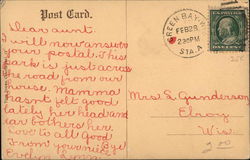 Post Card.
GREEN BAY, WIS.
FEB 28
2 30 PM
STA. A
ONE CENT
Dear aunt.
I will now answer
your postal. This
Park is just across
the road from our
house. Mamma
hasn't felt good
lately her head and
ear bothers her
Love to all Good
from your niece Bye
Mrs. S. Gunderson
Elroy
Wis.